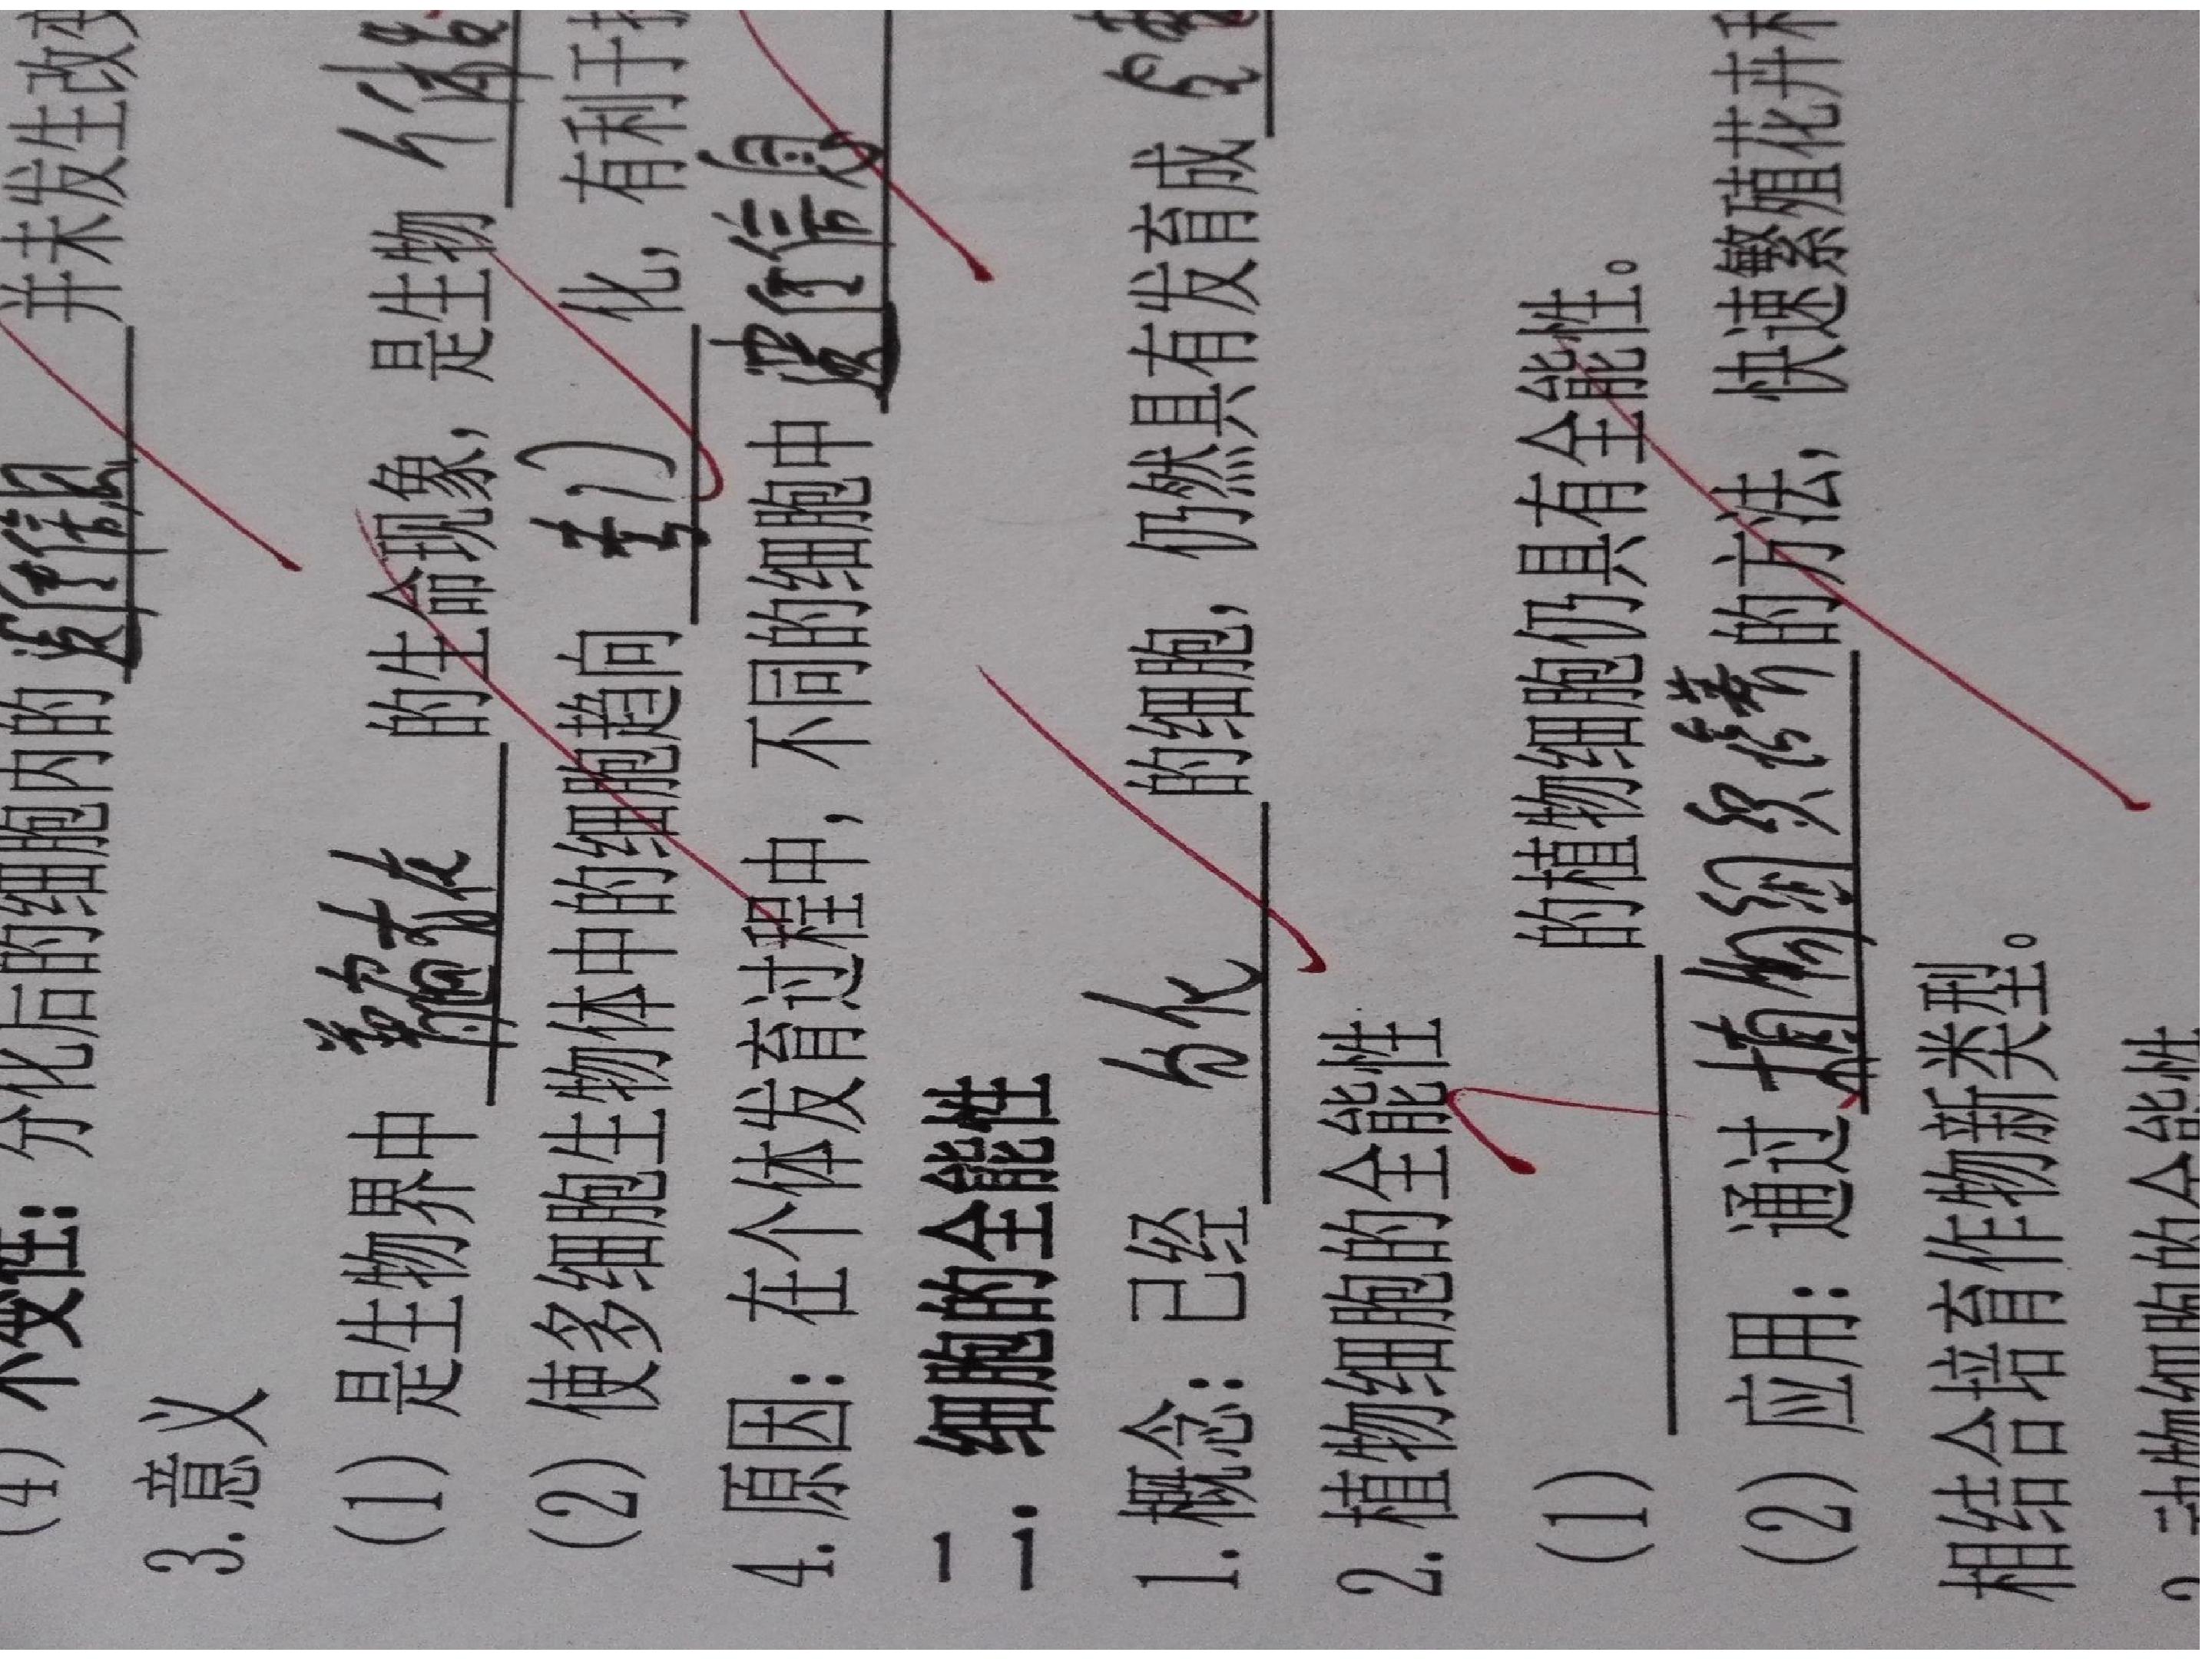 (4) 不变性：分化后的细胞内的 遗传信息 并未发生改变
3.意义
(1) 是生物界中 普遍存在 的生命现象，是生物 个体发
(2) 使多细胞生物体中的细胞趋向 专门 化，有利于
4.原因：在个体发育过程中，不同的细胞中 遗传信息
二：细胞的全能性
1.概念：已经 分化 的细胞，仍然具有发育成
2.植物细胞的全能性
(1) 的植物细胞仍具有全能性。
(2) 应用：通过 植物组织培养 的方法，快速繁殖花卉和
相结合培育作物新类型。
动物细胞的全能性